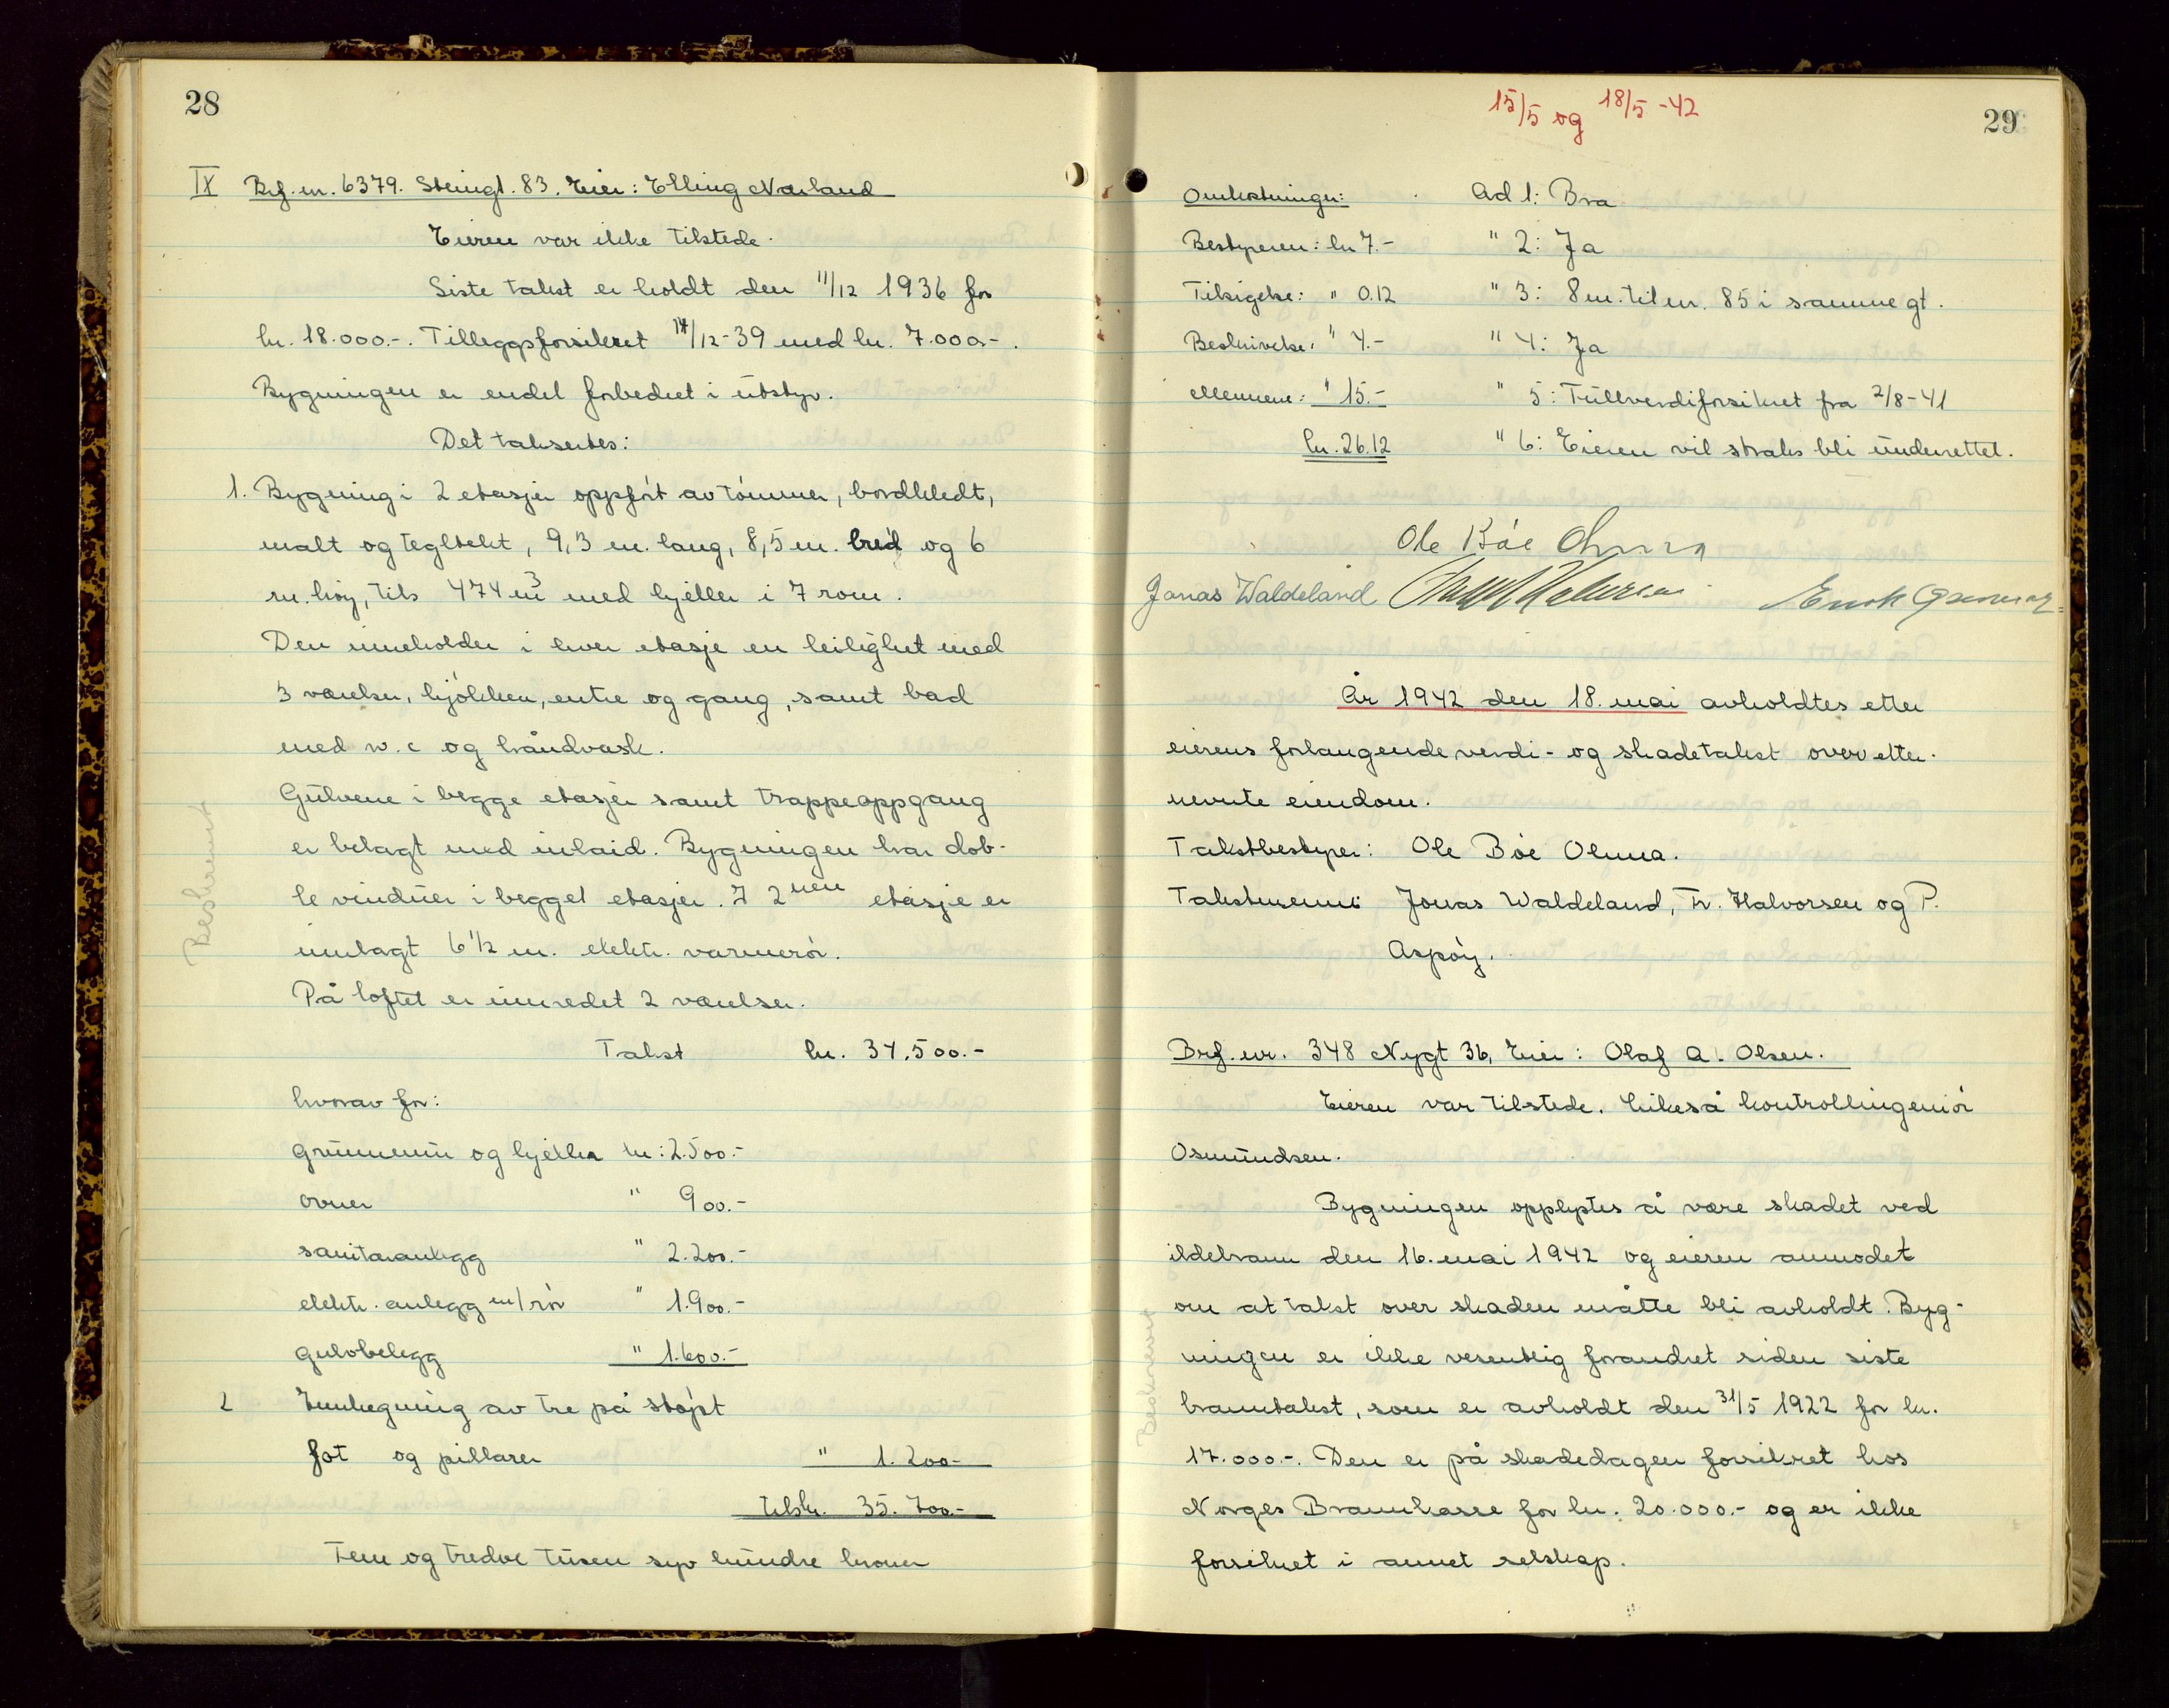 28
IX Brf. nr. 6379. Steingt. 83. Eier: Elling Narland
Eieren var ikke tilstede.
Siste takst er holdt den 11/12 1936 for
kr. 18.000.-. Tilleggsforsikret 14/12-39 med kr. 7.000.-.
Bygningen er endel forbedret i utstyr.
Det taksertes:
1. Bygning i 2 etasjer oppført av tømmer, bordkledt,
malt og tegltekt, 9,3 m. lang, 8,5 m. bred og 6
m. høy, tils 474 m3 med kjeller i 7 rom.
Den inneholder i hver etasje en leilighet med
3 værelser, kjøkken, entre og gang, samt bad
med w.c og håndvask.
Gulvene i begge etasjer samt trappeoppgang
er belagt med inlaid. Bygningen har dob-
le vinduer i begget etasjer. I 2nen etasje er
innlagt 6 1/2 m. elektr. varmerør.
På loftet er innredet 2 værelser.
Takst kr. 34.500.-
hvorav for:
grunnmur og kjeller kr: 2.500.-
ovner " 900.-
sanitæranlegg " 2.200.-
elektr. anlegg m/rør " 1.900.-
gulvbelegg " 1.600.-
2 Innhegning av tre på støpt
fot og pillarer " 1.200.-
tilskr. 35.700.-
Fem og tredve tusen syv hundre kroner
Beskrevet
15/5 og 18/5-42
29
Omkostninger: Ad 1: Bra
Bestyreren: kr 7.- " 2: Ja
Tilsigelse: " 0.12 " 3: 8 m. til nr. 85 i samme gt.
Beskrivelse: " 4.- " 4: Ja
Mennene: " 15.- " 5: Fullverdiforsikret fra 2/8-41
kr. 26.12 " 6: Eieren vil straks bli underrettet.
Ole Bøe Olmna
Jonas Waldeland
År 1942 den 18. mai avholdtes etter
eierens forlangende verdi- og skadetakst over etter-
nevnte eiendom.
Takstbestyrer: Ole Bøe Olmna.
Takstmenn: Jonas Waldeland, Fr. Halvorsen og P.
Aspøy.
Brf. nr. 348 Nygt 36, Eier: Olaf A. Olsen.
Eieren var tilstede. Likeså kontrollingeniør
Osmundsen.
Bygningen opplystes å være skadet ved
ildebrann den 16. mai 1942 og eieren anmodet
om at takst over skaden måtte bli avholdt. Byg-
ningen er ikke vesentlig forandret siden siste
branntakst, som er avholdt den 31/5 1922 for kr.
17.000.-. Den er på skadedagen forsikret hos
Norges Brannkasse for kr. 20.000.- og er ikke
forsikret i annet selskap.
Beskrevet